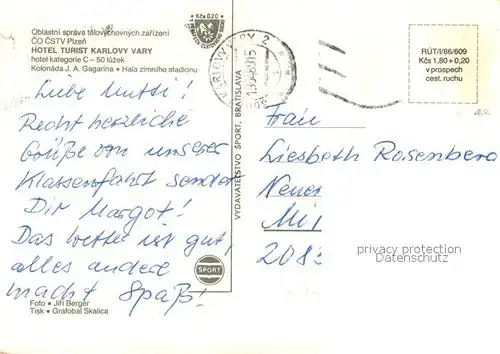 Oblastní správa tělovýchovných zařízení
ČO ČSTV Plzeň
HOTEL TURIST KARLOVY VARY
hotel kategorie C – 50 lůžek
Kolonáda J. A. Gagarina • Hala zimního stadionu
Kčs 0,20
KARLOVY VARY 2
RÚT/I/86/609
Kčs 1,80 + 0,20
v prospech
cest. ruchu
Liebe Mutti!
Recht herzliche
Grüße von unserer
Klassenfahrt sendet
Dir Margot!
Das Wetter ist gut,
alles andere
macht Spaß!
VYDAVATEĽSTVO ŠPORT, BRATISLAVA
ŠPORT
Frau
Liesbeth Rosenberg
Neuer
Mi
208
privacy protection
Datenschutz
Foto • Jiří Berger
Tisk • Grafobal Skalica